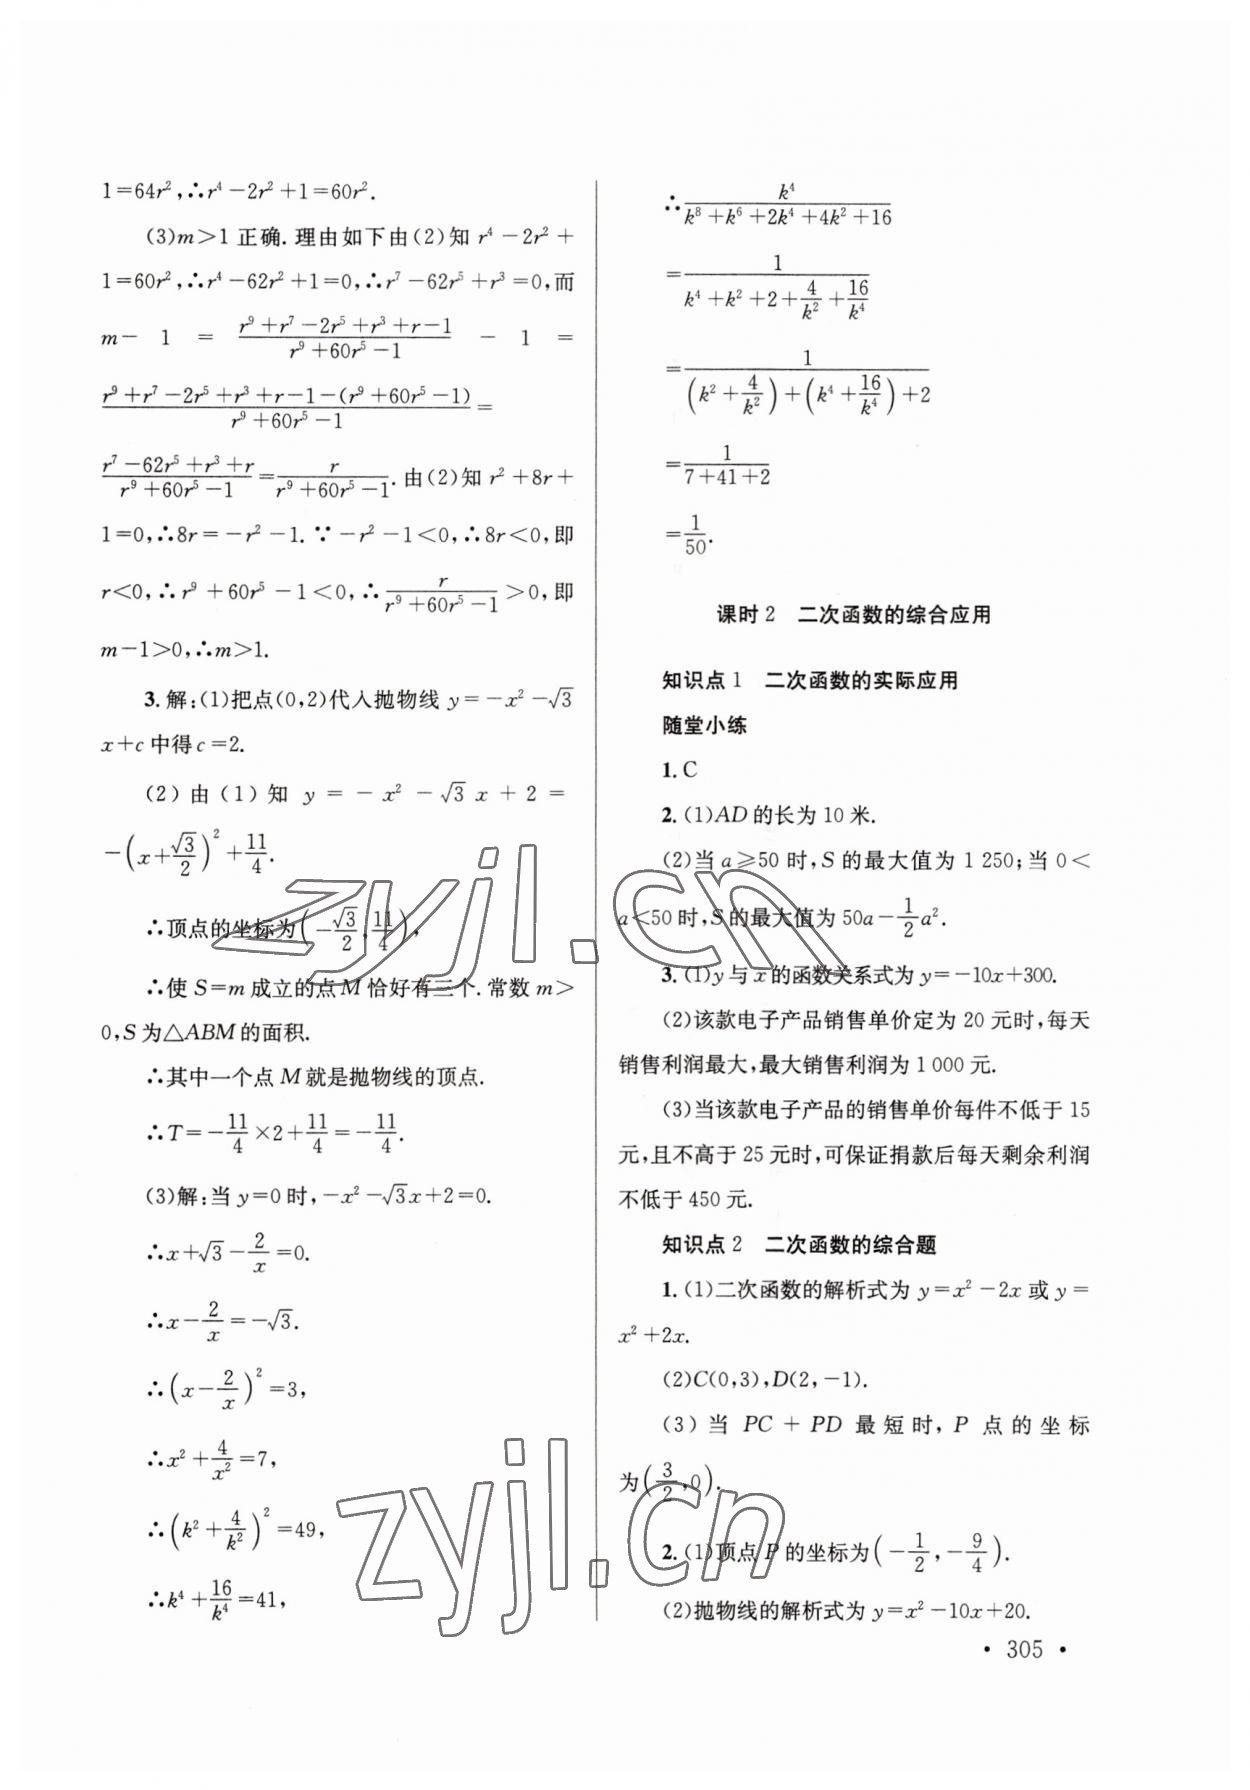 1=64r²,∴r⁴-2r²+1=60r².
(3)m>1 正确. 理由如下由(2)知 r⁴-2r²+
1=60r²,∴r⁴-62r²+1=0,∴r⁷-62r⁵+r³=0,而
m-1=(r⁹+r⁷-2r⁵+r³+r-1)/(r⁹+60r⁵-1)-1=
(r⁹+r⁷-2r⁵+r³+r-1-(r⁹+60r⁵-1))/(r⁹+60r⁵-1)=
(r⁷-62r⁵+r³+r)/(r⁹+60r⁵-1)=r/(r⁹+60r⁵-1).由(2)知 r²+8r+
1=0,∴8r=-r²-1.∵-r²-1<0,∴8r<0,即
r<0,∴r⁹+60r⁵-1<0,∴r/(r⁹+60r⁵-1)>0,即
m-1>0,∴m>1.
3.解:(1)把点(0,2)代入抛物线 y=-x²-√3
x+c 中得 c=2.
(2)由(1)知 y=-x²-√3x+2=
-(x+√3/2)²+11/4.
∴顶点的坐标为(-√3/2,11/4),
∴使 S=m 成立的点 M 恰好有三个.常数 m>
0,S 为△ABM 的面积.
∴其中一个点 M 就是抛物线的顶点.
∴T=-11/4×2+11/4=-11/4.
(3)解:当 y=0 时,-x²-√3x+2=0.
∴x+√3-2/x=0.
∴x-2/x=-√3.
∴(x-2/x)²=3,
∴x²+4/x²=7,
∴(k²+4/k²)²=49,
∴k⁴+16/k⁴=41,
∴k⁴/(k⁸+k⁶+2k⁴+4k²+16)
=1/(k⁴+k²+2+4/k²+16/k⁴)
=1/((k²+4/k²)+(k⁴+16/k⁴)+2)
=1/(7+41+2)
=1/50.
课时2 二次函数的综合应用
知识点1 二次函数的实际应用
随堂小练
1.C
2.(1)AD 的长为 10 米.
(2)当 a≥50 时,S 的最大值为 1 250;当 0<
a<50 时,S 的最大值为 50a-1/2a².
3.(1)y 与 x 的函数关系式为 y=-10x+300.
(2)该款电子产品销售单价定为 20 元时,每天
销售利润最大,最大销售利润为 1 000 元.
(3)当该款电子产品的销售单价每件不低于 15
元,且不高于 25 元时,可保证捐款后每天剩余利润
不低于 450 元.
知识点2 二次函数的综合题
1.(1)二次函数的解析式为 y=x²-2x 或 y=
x²+2x.
(2)C(0,3),D(2,-1).
(3)当 PC+PD 最短时,P 点的坐标
为(3/2,0).
2.(1)顶点 P 的坐标为(-1/2,-9/4).
(2)抛物线的解析式为 y=x²-10x+20.
• 305 •
zyjl.cn
zyjl.cn